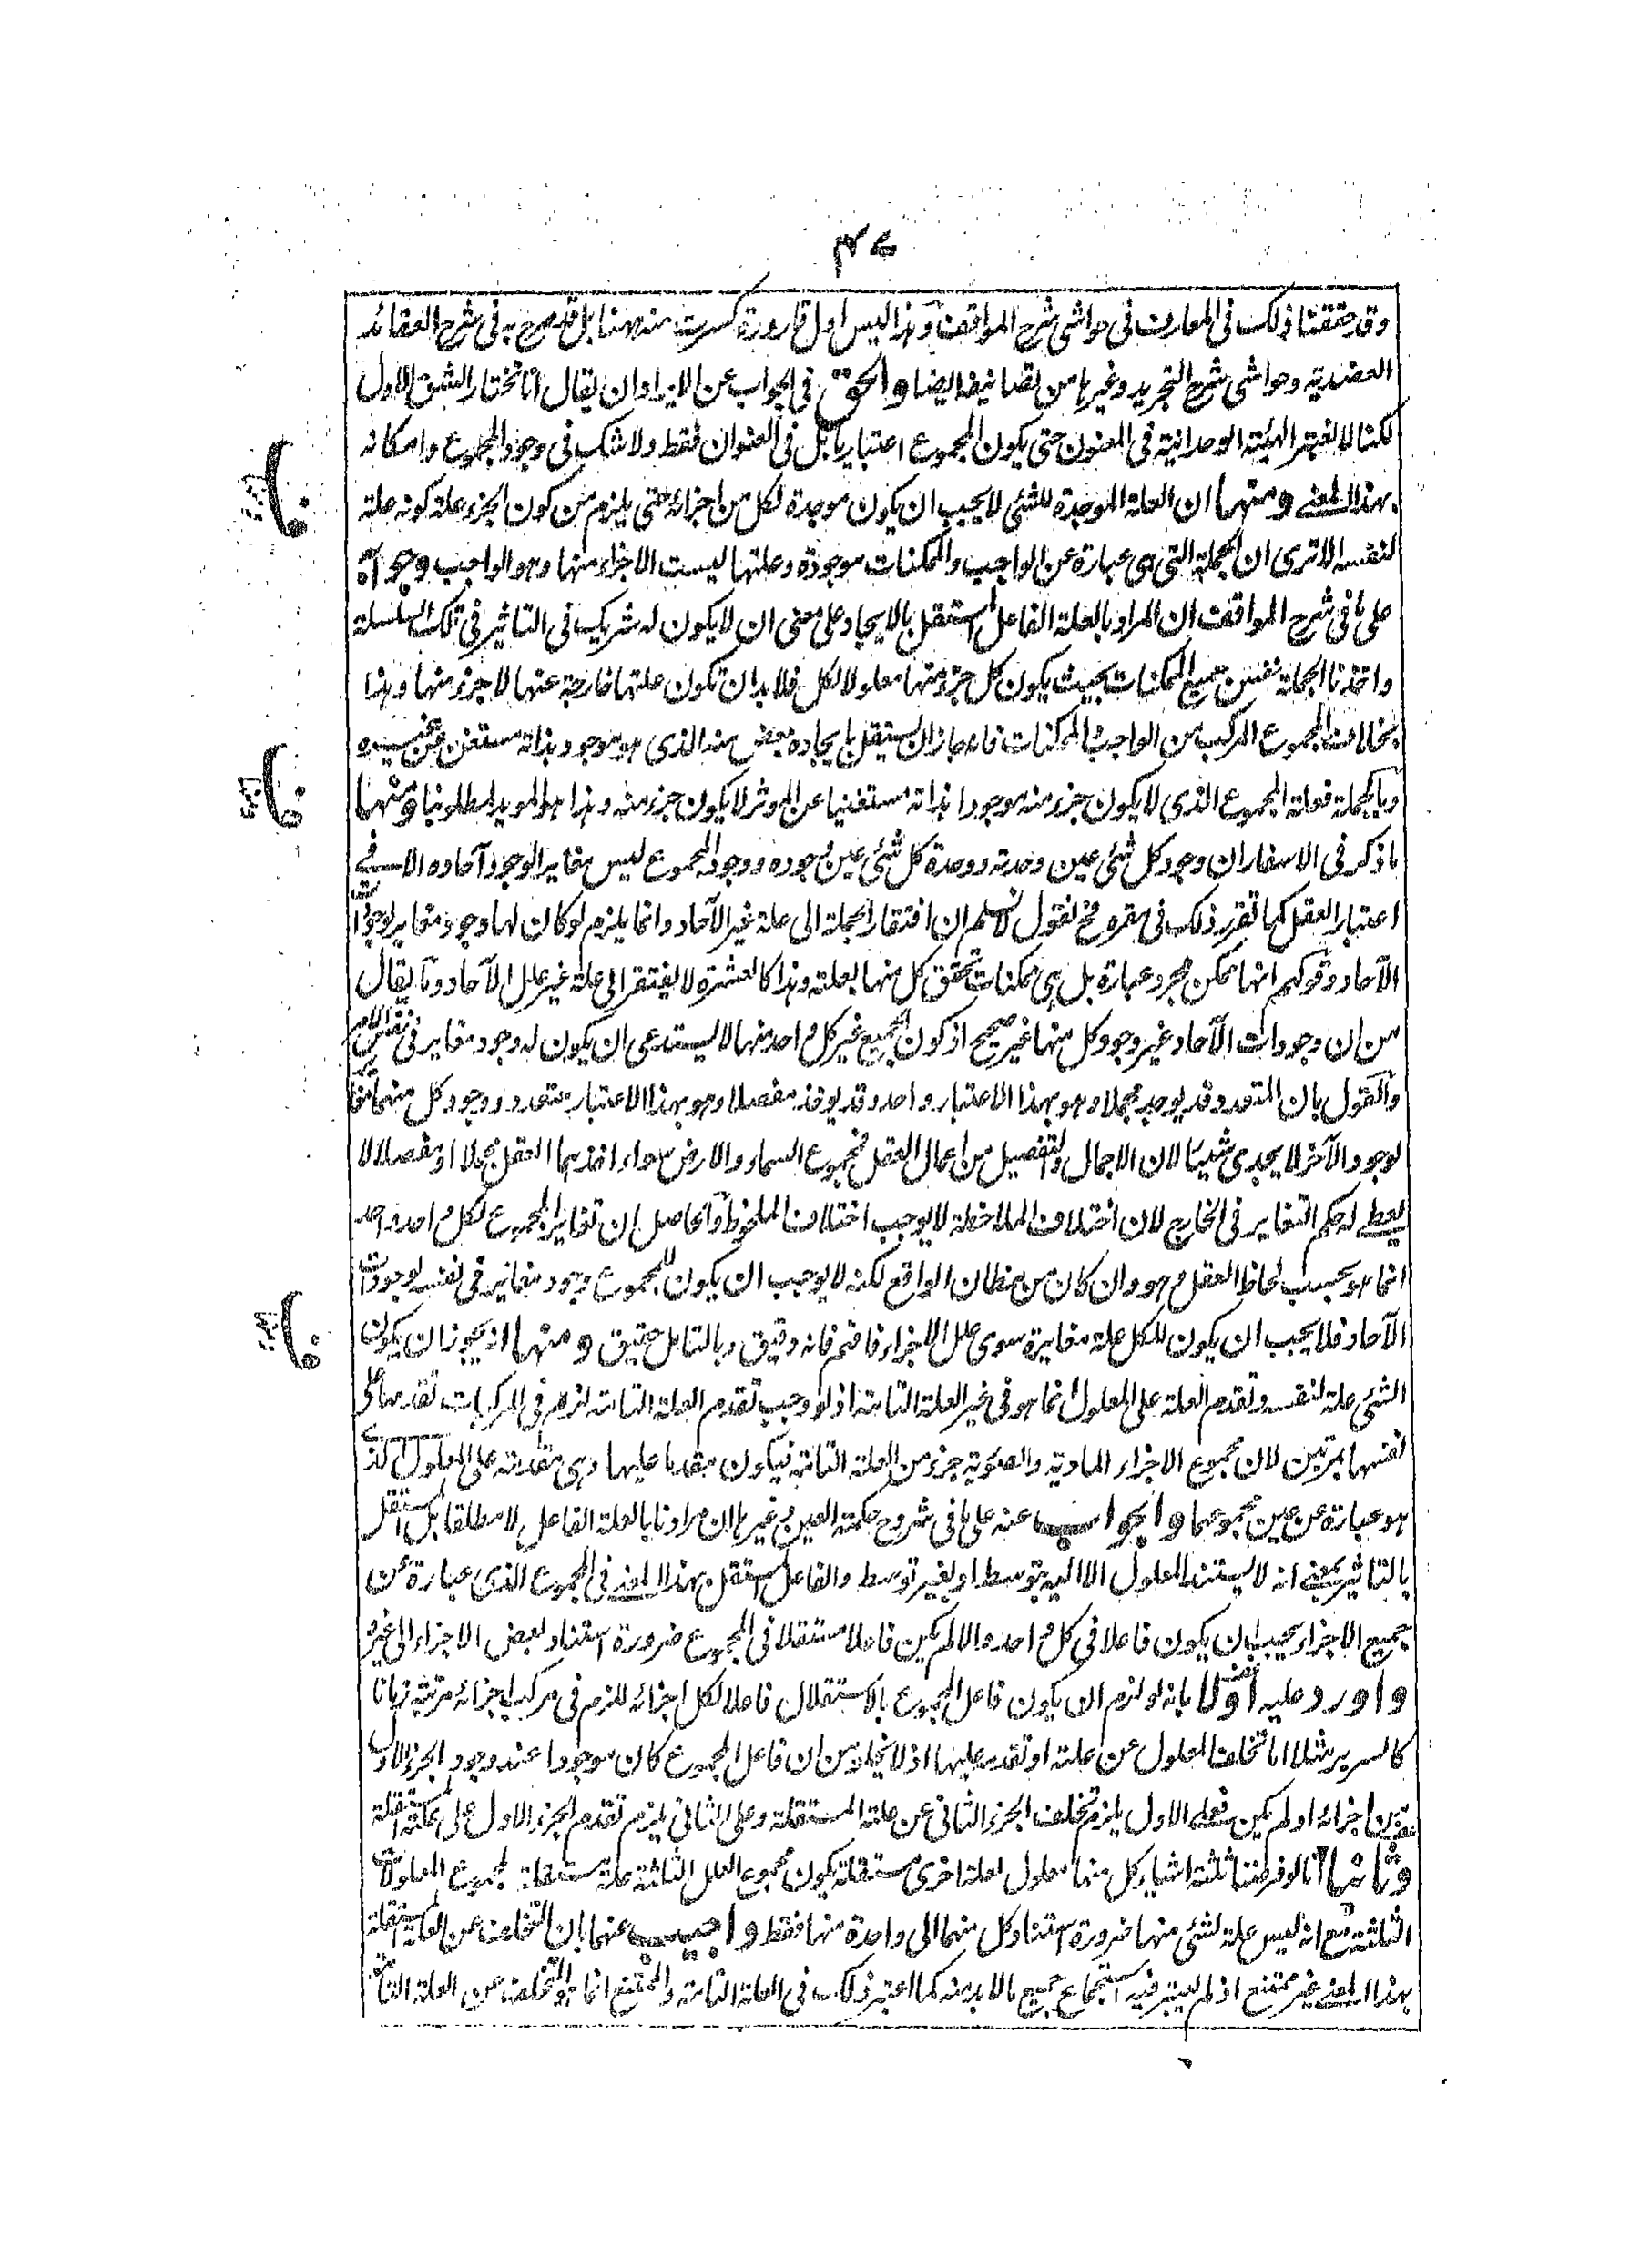 ٤٧
وقد حققنا ذلك فى المعارف فى حواشى شرح المواقف وهذا ليس اول قارورة كسرت منه ههنا بل قد صرح به فى شرح العقائد
العضدية وحواشى شرح التجريد وغيرها من تصانيفه ايضا والحق فى الجواب عن الايراد ان يقال انا نختار الشق الاول
لكنا لا نعتبر الهيئة الوحدانية فى المعنون حتى يكون المجموع اعتباريا بل فى العنوان فقط ولا شك فى وجود المجموع وامكانه
بهذا المعنى ومنها ان العلة الموجدة للشئ لا يجب ان يكون موجدة لكل من اجزائه حتى يلزم من كون الجزء علة كونه علة
لنفسه الا ترى ان الجملة التى هى عبارة عن الواجب والممكنات موجودة وعلتها ليست الا جزء منها وهو الواجب وجوابه
على ما فى شرح المواقف ان المراد بالعلة الفاعل المستقل بالايجاد على معنى ان لا يكون له شريك فى التاثير فى تلك السلسلة
واخذنا الجملة نفس جميع الممكنات بحيث يكون كل جزء منها معلولا لكل فلا بد ان تكون علتها خارجة عنها لا جزء منها وهذا
بخلاف المجموع المركب من الواجب والممكنات فانه جاز ان يستقل بايجاده بعض منه الذى هو موجود بذاته مستغن عن غيره
وبالجملة فعلة المجموع الذى لا يكون جزء منه موجودا بذاته مستغنيا عن المؤثر لا يكون جزء منه وهذا هو المويد لمطلوبنا ومنها
ما ذكر فى الاسفار ان وجود كل شئ عين وحدته ووحدة كل شئ عين وجوده ووجود المجموع ليس مغاير الوجود آحاده الا فى
اعتبار العقل كما تقرر ذلك فى مقره فح نقول لا نسلم ان افتقار الجملة الى علة غير الآحاد وانما يلزم لو كان لها وجود مغاير لوجودات
الآحاد وقولهم انها ممكن مجرد عبارة بل هى ممكنات تحقق كل منها بعلته وهذا كالعشرة لا يفتقر الى علة غير علل الآحاد وما يقال
من ان وجودات الآحاد غير وجود كل منها غير صحيح اذ كون الجميع غير كل واحد منها لا يستدعى ان يكون له وجود مغاير فى نفس الامر
والقول بان المتعدد قد يوجد مجملا وهو بهذا الاعتبار واحد وقد يوخذ مفصلا وهو بهذا الاعتبار متعدد ووجود كل منهما مغاير
لوجود الآخر لا يجدى شيئا لان الاجمال والتفصيل من اعمال العقل فمجموع السماء والارض سواء اخذهما العقل مجملا او مفصلا لا
يعطى له حكم التغاير فى الخارج لان اختلاف الملاحظة لا يوجب اختلاف الملحوظ والحاصل ان تغاير المجموع لكل واحد واحد
انما هو بحسب لحاظ العقل وهو وان كان من مظان الواقع لكنه لا يوجب ان يكون للمجموع وجود مغاير فى نفسه لوجودات
الآحاد فلا يجب ان يكون للكل علة مغايرة سوى علل الاجزاء فافهم فانه دقيق وبالتامل حقيق ومنها انه يجوز ان يكون
الشئ علة لنفسه وتقدم العلة على المعلول انما هو فى غير العلة التامة اذ لو وجب تقدم العلة التامة لزم فى المركبات تقدمها على
نفسها بمرتبين لان مجموع الاجزاء المادية والصورية جزء من العلة التامة فيكون مقدما عليها وهى مقدمة على المعلول الذى
هو عبارة عن عين مجموعهما والجواب عنه على ما فى شروح حكمة العين وغيرها ان مرادنا بالعلة الفاعل لا مطلقا بل المستقل
بالتاثير بمعنى انه لا يستند المعلول الا اليه بتوسط او بغير توسط والفاعل المستقل بهذا المعنى فى المجموع الذى عبارة عن
جميع الاجزاء يجب ان يكون فاعلا فى كل واحد والا لم يكن فاعلا مستقلا فى المجموع ضرورة استناد بعض الاجزاء الى غيره
واورد عليه اولا بانه لو لزم ان يكون فاعل المجموع بالاستقلال فاعلا لكل اجزائه للزم فى مركب اجزائه مرتبة زمانا
كالسرير مثلا اما تخلف المعلول عن علته او تقدمه عليها اذ لا يخلو من ان فاعل المجموع كان موجودا عند وجود الجزء الاول
من اجزائه او لم يكن فعلى الاول يلزم تخلف الجزء الثانى عن علته المستقلة وعلى الثانى يلزم تقدم الجزء الاول على علته المستقلة
وثانيا انا لو فرضنا ثلثة اشياء كل منها معلول لعلة اخرى مستقلة يكون مجموع العلل الثلثة علة مستقلة لمجموع المعلولات
الثلثة مع انه ليس علة لشئ منها ضرورة استناد كل منهما الى واحدة منها فقط واجيب عنهما بان التخلف عن العلة المستقلة
بهذا المعنى غير ممتنع اذ لم يعتبر فيه استجماع جميع ما لا بد منه كما اعتبر ذلك فى العلة التامة والممتنع انما هو التخلف عن العلة التامة